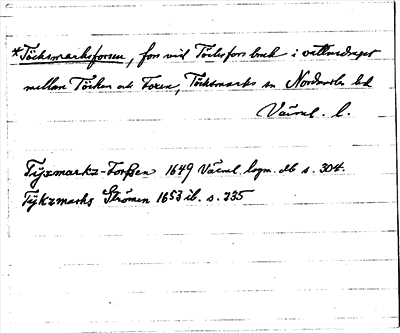 *Töcksmarksforsen, fors vid Töcksfors bruk i vattendraget
mellan Töcken och Foxen, Töcksmarks sn Nordmarks hd
Värml. l.
Tyxmarkz-Forßen 1649 Värml. lagm. db s. 304.
Tykzmarks Strömen 1653 ib. s. 735